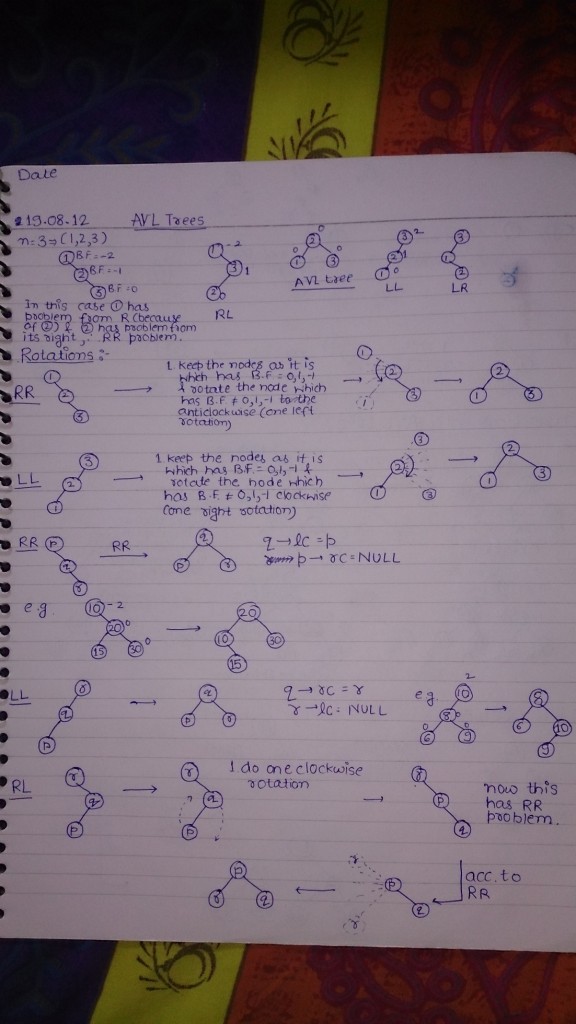 Date
19.08.12 AVL Trees
n=3 ⇒ (1,2,3)
1 B.F = -2
2 B.F = -1
3 B.F = 0
1 -2
3 1
2 0
RL
2 0
1 0 3 0
AVL tree
3 2
2 1
1 0
LL
3
1
2
LR
In this case ① has
problem from R (because
of ②) & ② has problem from
its right, ∴ RR problem.
Rotations :-
RR
1
2
3
1 keep the nodes as it is
which has B.F = 0,1,-1
& rotate the node which
has B.F. ≠ 0,1,-1 to the
anticlockwise (one left
rotation)
1
2
1 3
2
1 3
LL
3
2
1
1 keep the nodes as it is
which has B.F. = 0,1,-1 &
rotate the node which
has B.F. ≠ 0,1,-1 clockwise
(one right rotation)
3
2
1 3
2
1 3
RR
p
q
r
RR
q
p r
q → lc = p
p → rc = NULL
e.g.
10 -2
20 0
15 30 0
20
10 30
15
LL
r
q
p
q
p r
q → rc = r
r → lc = NULL
eg.
2
10
8 0
0 0
6 9
8
6 10
9
RL
r
q
p
r
q
p
1 do one clockwise
rotation
r
p
q
now this
has RR
problem.
acc. to
RR
r
p
q
r
p
r q